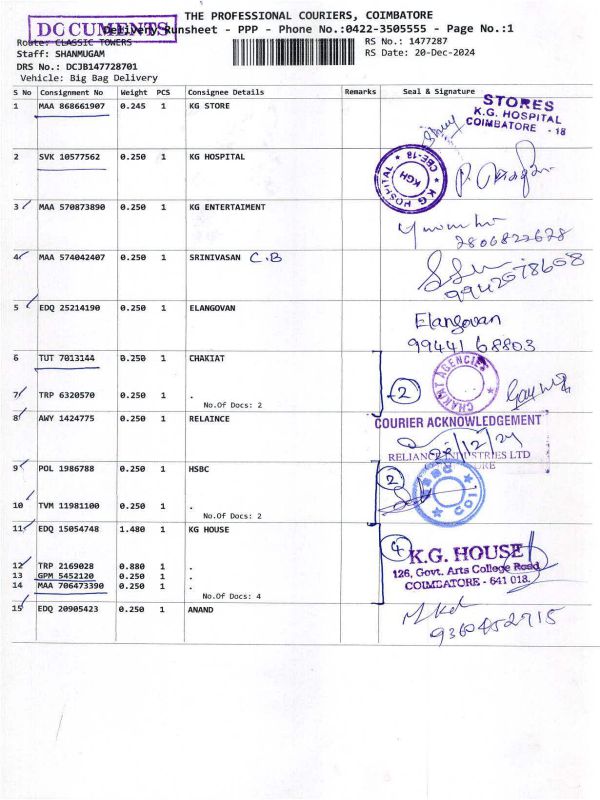 THE PROFESSIONAL COURIERS, COIMBATORE
DOCUMENTS
Delivery Runsheet - PPP - Phone No.:0422-3505555 - Page No.:1
Route: CLASSIC TOWERS
RS No.: 1477287
Staff: SHANMUGAM
RS Date: 20-Dec-2024
DRS No.: DCJB147728701
Vehicle: Big Bag Delivery
S No Consignment No Weight PCS Consignee Details Remarks Seal & Signature
1 MAA 868661907 0.245 1 KG STORE
STORES
K.G. HOSPITAL
COIMBATORE - 18
2 SVK 10577562 0.250 1 KG HOSPITAL
K G HOSPITAL CBE-18
KGH
3 MAA 570873890 0.250 1 KG ENTERTAIMENT
2806822678
4 MAA 574042407 0.250 1 SRINIVASAN C.B
9942078608
5 EDQ 25214190 0.250 1 ELANGOVAN
Elangovan
99441 68803
6 TUT 7013144 0.250 1 CHAKIAT
CHAKIAT AGENCIES
7 TRP 6320570 0.250 1 .
2
No.Of Docs: 2
8 AWY 1424775 0.250 1 RELAINCE
COURIER ACKNOWLEDGEMENT
RELIANCE INDUSTRIES LTD
9 POL 1986788 0.250 1 HSBC
2
HSBC COI.
10 TVM 11981100 0.250 1 .
No.Of Docs: 2
11 EDQ 15054748 1.480 1 KG HOUSE
4
K.G. HOUSE
126, Govt. Arts College Road
COIMBATORE - 641 018.
12 TRP 2169028 0.880 1 .
13 GPM 5452120 0.250 1 .
14 MAA 706473390 0.250 1 .
No.Of Docs: 4
15 EDQ 20905423 0.250 1 ANAND
9360452715